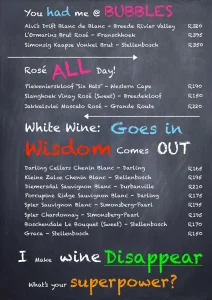 You had me @ BUBBLES
Alvi's Drift Blanc de Blanc - Breede River Valley R220
L'Ormarins Brut Rosé - Franschhoek R395
Simonsig Kaapse Vonkel Brut - Stellenbosch R350
Rosé ALL Day!
Piekenierskloof "Six Hats" - Western Cape R190
Slanghoek Vinay Rosé (Sweet) - Breedekloof R150
Jakkalsvlei Moscato Rosé - Grande Route R220
White Wine: Goes in
Wisdom Comes OUT
Darling Cellars Chenin Blanc - Darling R165
Kleine Zalze Chenin Blanc - Stellenbosch R195
Diemersdal Sauvignon Blanc - Durbanville R210
Porcupine Ridge Sauvignon Blanc - Darling R175
Spier Sauvignon Blanc - Simonsberg-Paarl R195
Spier Chardonnay - Simonsberg-Paarl R195
Boschendale Le Bouquet (Sweet) - Stellenbosch R170
Graca - Stellenbosch R150
I Make wine Disappear
What's your superpower?